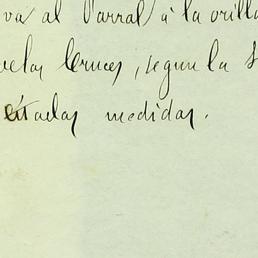 va al Parral á la orilla
de las Cruces, segun la s
citadas medidas.